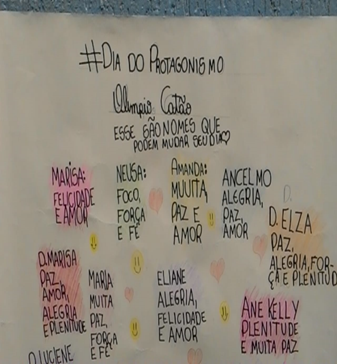 #DIA DO PROTAGONISMO
Olimpio Catão
ESSE SÃO NOMES QUE
PODEM MUDAR SEU DIA
MARISA:
FELICIDADE
E AMOR
NEUSA:
FOCO,
FORÇA
E FÉ
AMANDA:
MUUITA,
PAZ E
AMOR
ANCELMO
ALEGRIA,
PAZ,
AMOR
D.ELZA
PAZ,
ALEGRIA,FOR-
ÇA E PLENITUD
D.MARISA
PAZ,
AMOR,
ALEGRIA
E PLENITUDE
MARIA
MUITA
PAZ,
FORÇA
E FÉ
ELIANE
ALEGRIA,
FELICIDADE
E AMOR
ANE KELLY
PLENITUDE
E MUITA PAZ
D.LUCIENE